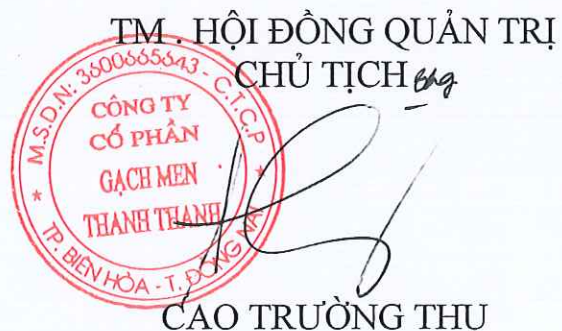 TM . HỘI ĐỒNG QUẢN TRỊ
CHỦ TỊCH
M.S.D.N: 3600665643 - C.T.C.P
CÔNG TY
CỔ PHẦN
GẠCH MEN
THANH THANH
TP. BIÊN HÒA - T. ĐỒNG NAI
CAO TRƯỜNG THU